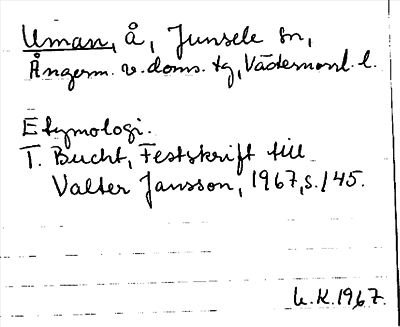 Uman, å, Junsele sn,
Ångerm. v. doms. tg, Västernorrl. l.
Etymologi.
T. Bucht, Festskrift till
Valter Jansson, 1967, s. 145.
h.K. 1967.